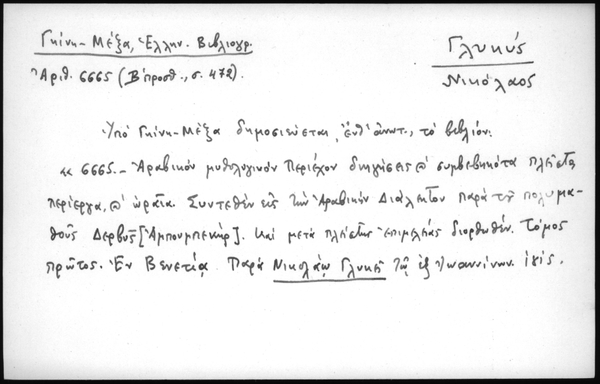 Γκίνη - Μέξα, Ἑλλην. Βιβλιογρ.
Ἀριθ. 6665 (Β' προσθ., σ. 472).
Γλυκύς
Νικόλαος
Ὑπό Γκίνη - Μέξα δημοσιεύεται, ἔνθ' ἀνωτ., τό βιβλίον:
« 6665. - Ἀραβικόν μυθολογικόν Περιέχον διηγήσεις ϗ συμβεβηκότα πλεῖστα
περίεργα, ϗ ὡραῖα. Συντεθέν εἰς τήν Ἀραβικήν Διάλεκτον παρά τοῦ πολυμα-
θοῦς Δερβύς [Ἀμπουμπεκήρ]. Καί μετά πλείστης ἐπιμελείας διορθωθέν. Τόμος
πρῶτος. Ἐν Βενετίᾳ. Παρά Νικολάῳ Γλυκεῖ Τῷ ἐξ Ἰωαννίνων.